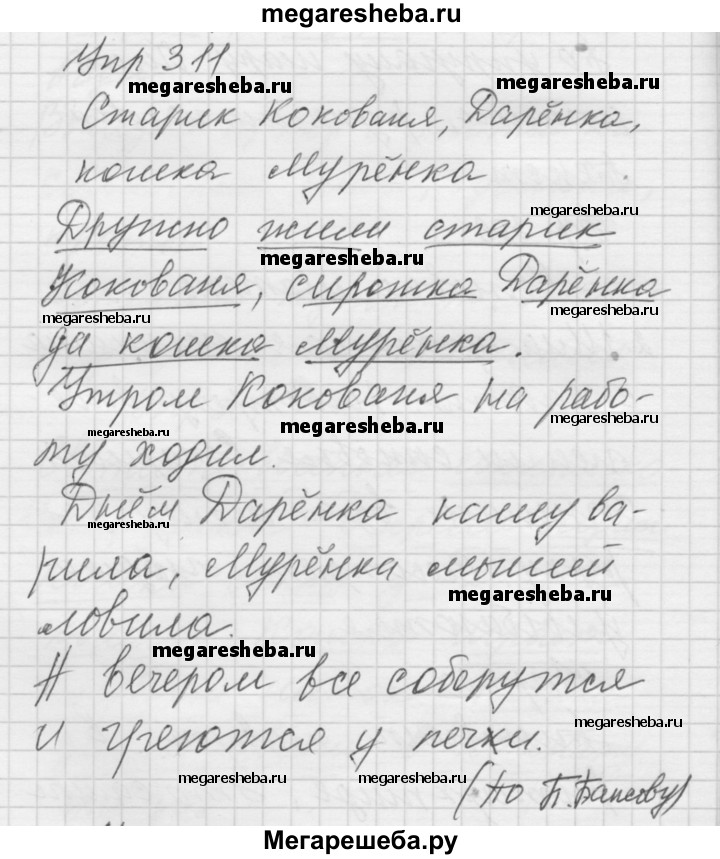 megaresheba.ru
Упр 311
megaresheba.ru megaresheba.ru
Старик Кокованя, Дарёнка,
кошка Мурёнка
megaresheba.ru
Дружно жили старик
megaresheba.ru
Кокованя, сиротка Дарёнка
megaresheba.ru megaresheba.ru
да кошка Мурёнка.
Утром Кокованя на рабо-
megaresheba.ru megaresheba.ru megaresheba.ru
ту ходил.
Днём Дарёнка кашу ва-
megaresheba.ru
рила, Мурёнка мышей
megaresheba.ru
ловила.
megaresheba.ru
А вечером все соберутся
megaresheba.ru
и греются у печки.
megaresheba.ru megaresheba.ru
(По П. Бажову)
Мегарешеба.ру